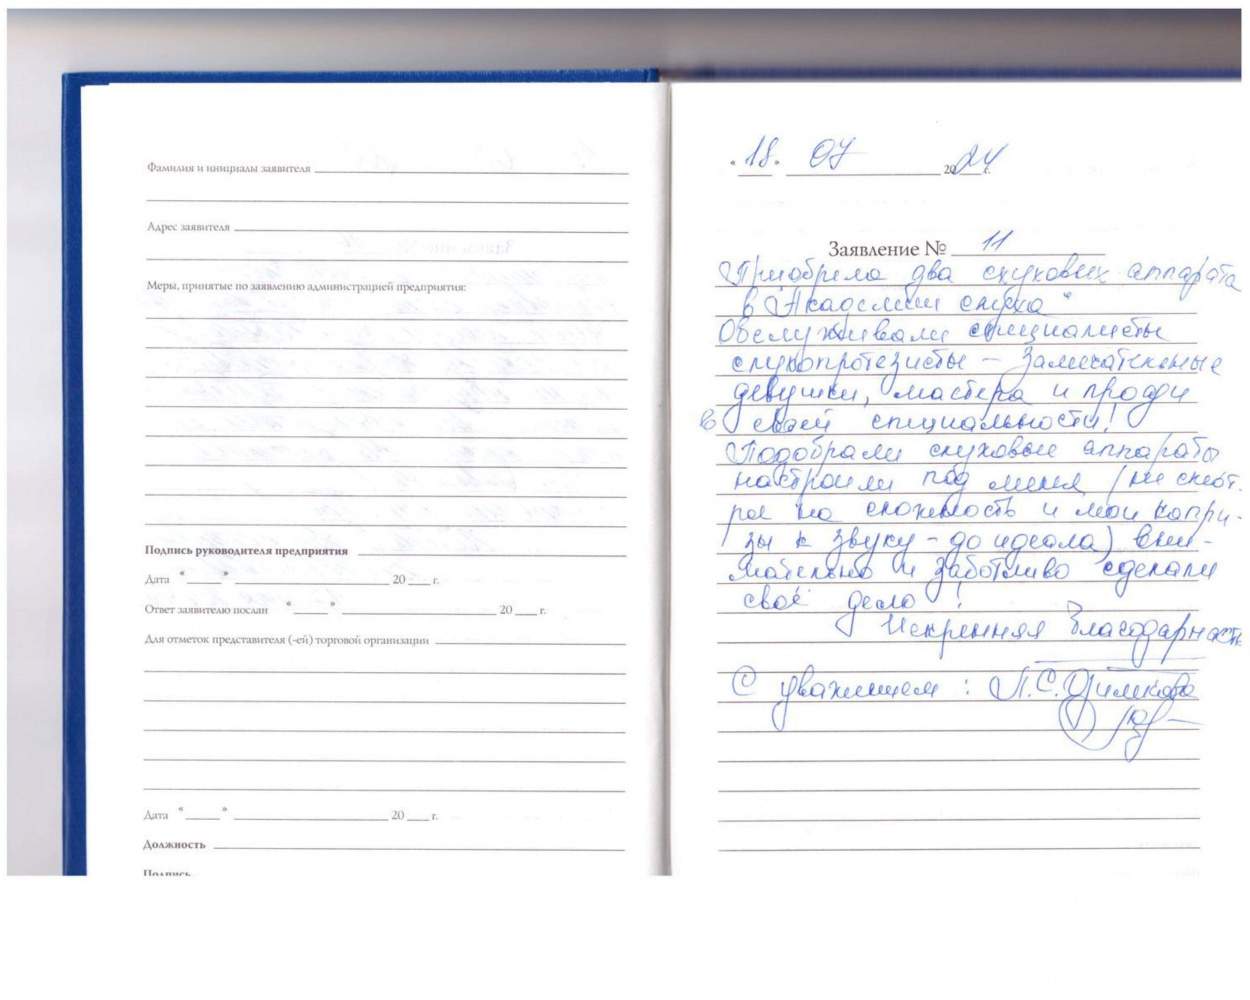 Фамилия и инициалы заявителя
Адрес заявителя
Меры, принятые по заявлению администрацией предприятия:
Подпись руководителя предприятия
Дата " " 20 г.
Ответ заявителю послан " " 20 г.
Для отметок представителя (-ей) торговой организации
Дата " " 20 г.
Должность
Подпись
"18" 07 2024 г.
Заявление № 11
Приобрела два слуховых аппарата
в "Академии слуха"
Обслуживали специалисты
слухопротезисты - замечательные
девушки, мастера и профи
в своей специальности!
Подобрали слуховые аппараты
настроили под меня (не смот.
ря на сложность и мои капри-
зы к звуку - до идеала) вни-
мательно и заботливо сделали
своё дело!
Искренняя благодарность
С уважением: Л.С.